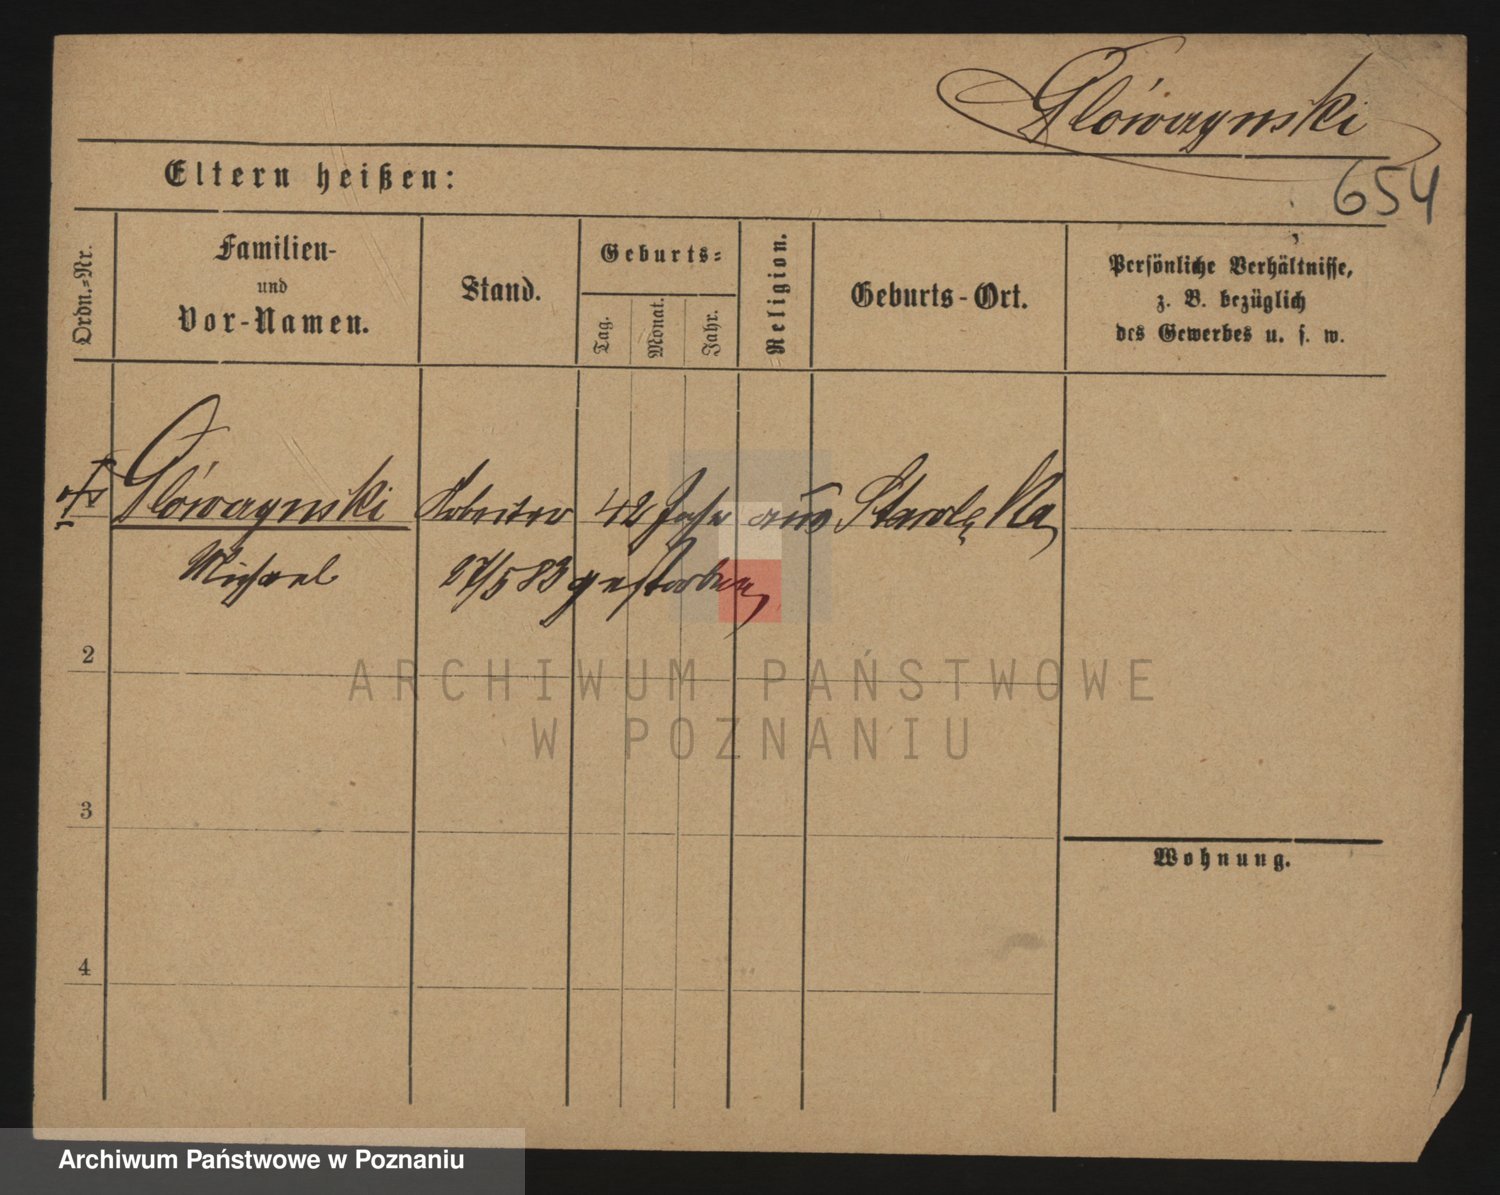 Glówczynski
654
Eltern heißen:
Ordn.=Nr.
Familien-
und
Vor-Namen.
Stand.
Geburts=
Tag.
Monat.
Jahr.
Religion.
Geburts-Ort.
Persönliche Verhältnisse,
z. B. bezüglich
des Gewerbes u. s. w.
Glówczynski Arbeiter 42 Jahr aus Starolęka
Michael 27/5 83 gestorben
2
ARCHIWUM PAŃSTWOWE
W POZNANIU
3
Wohnung.
4
Archiwum Państwowe w Poznaniu